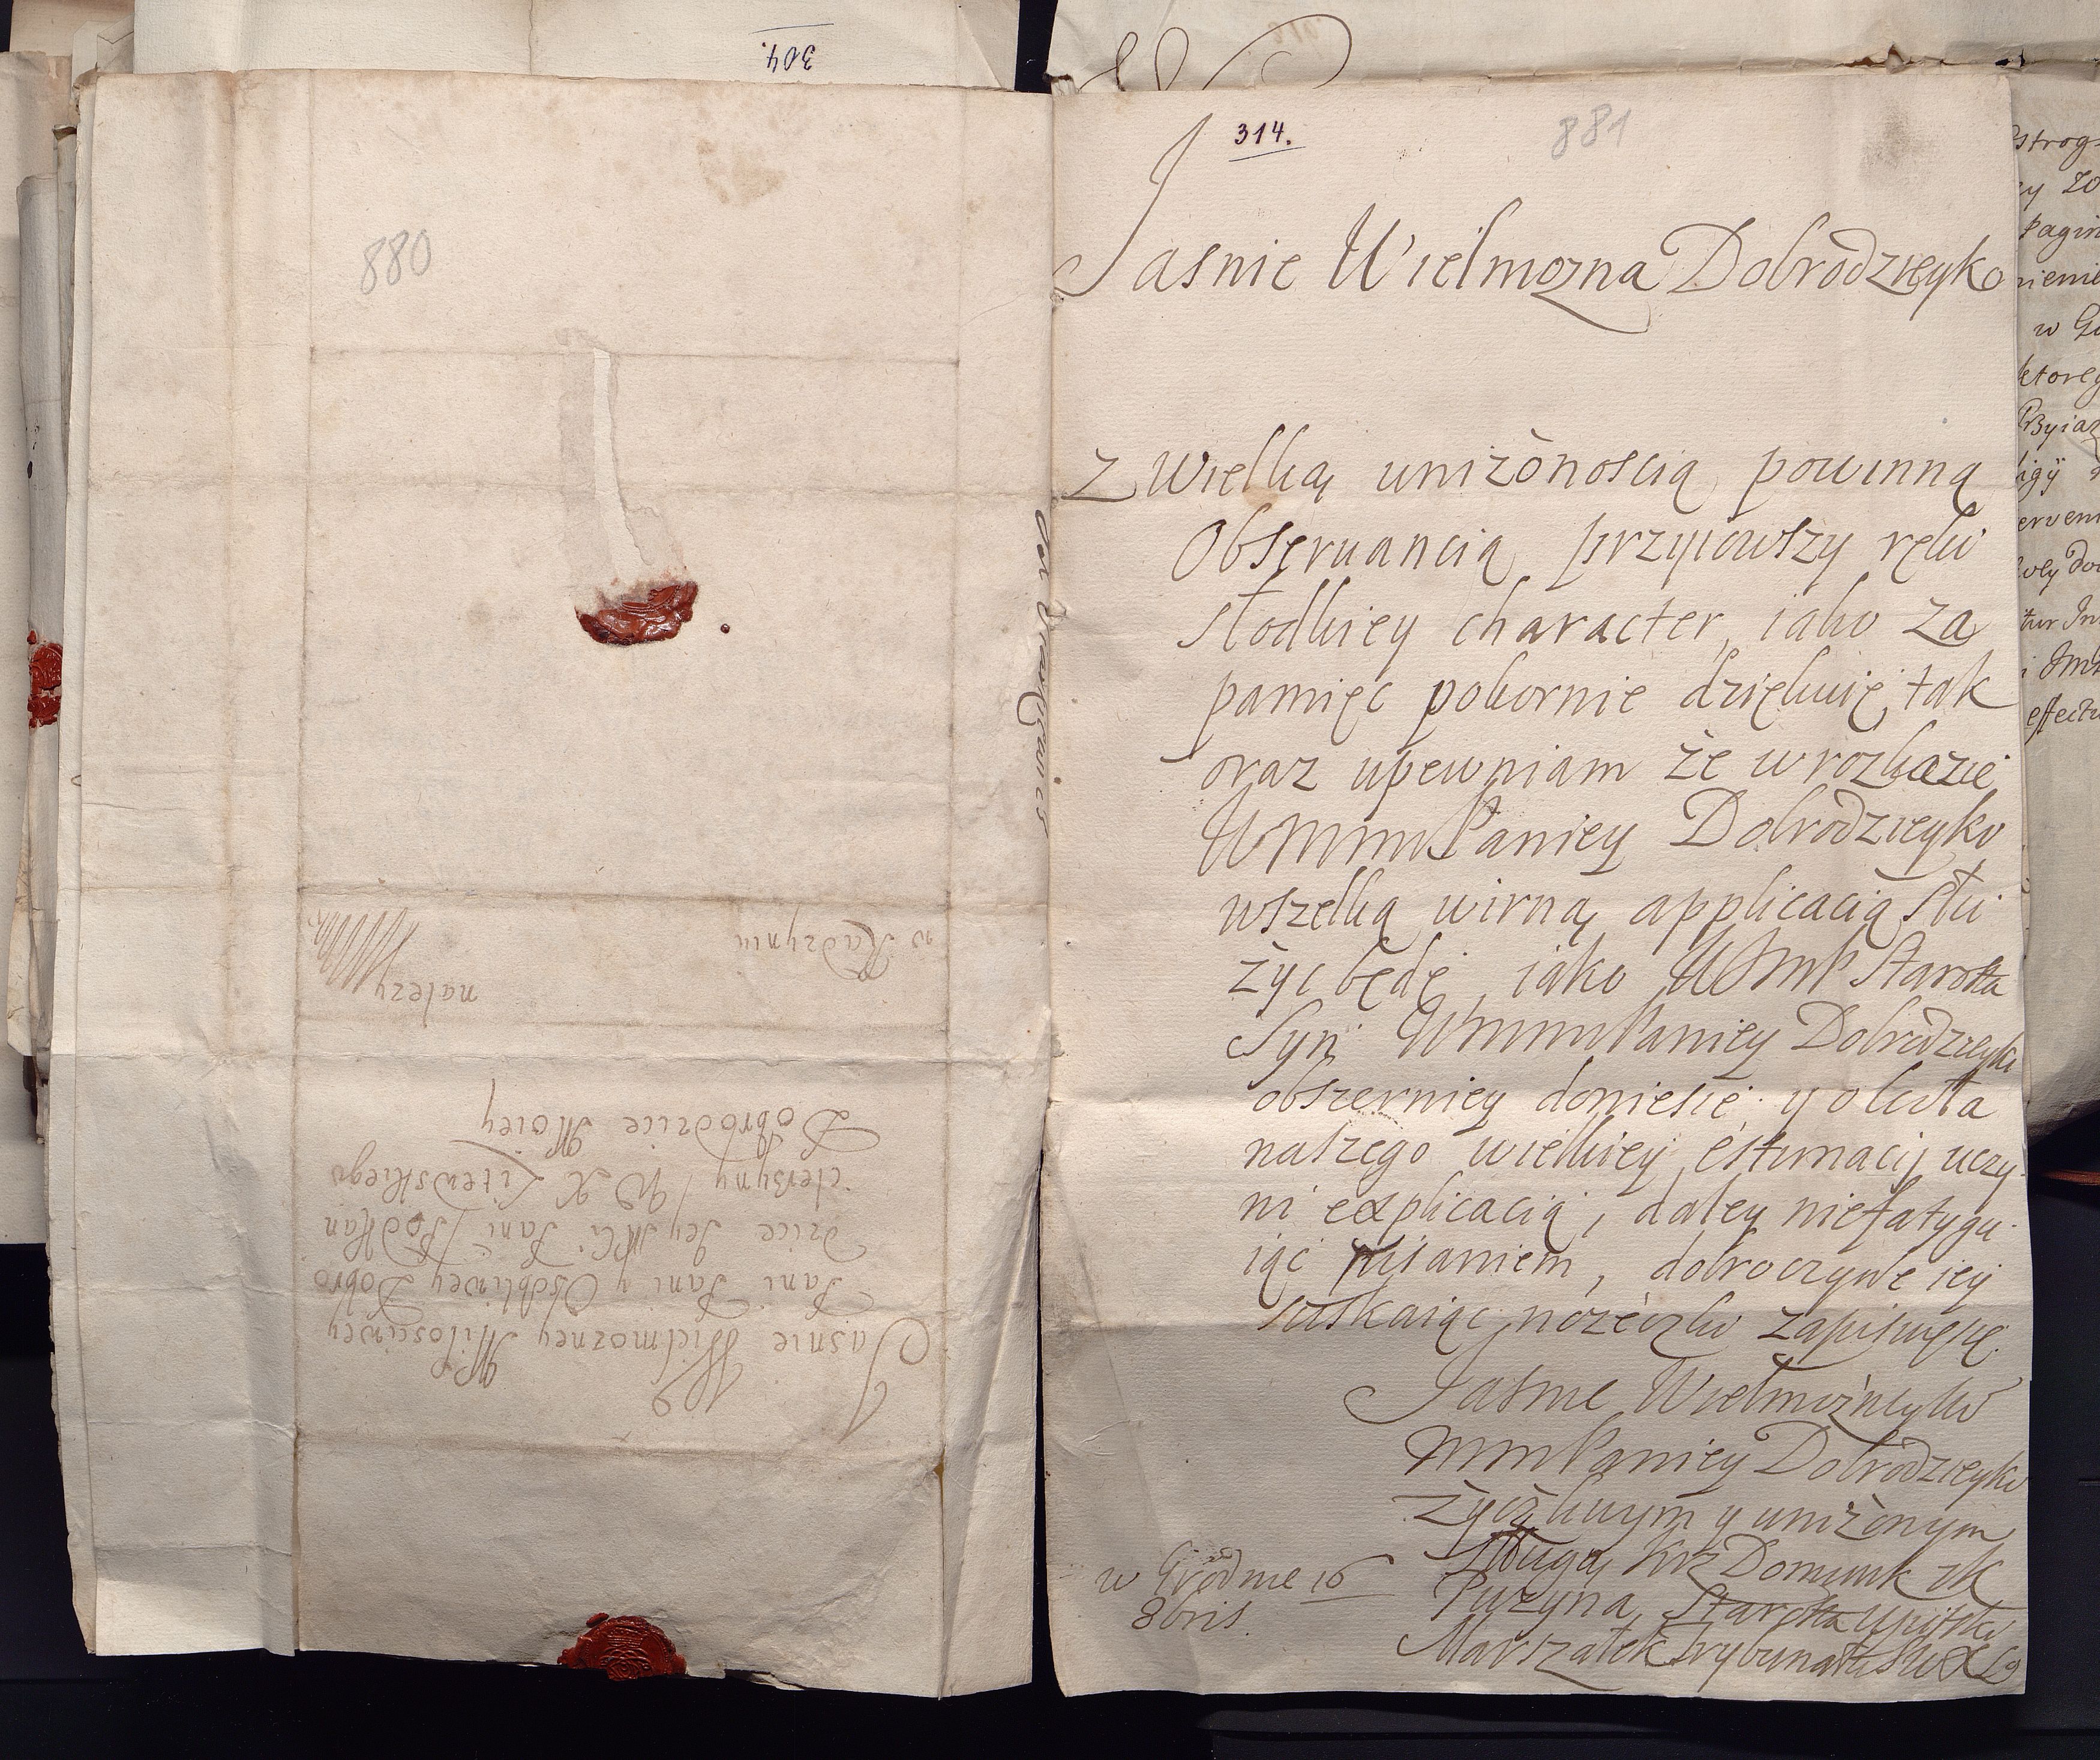 304.
880
w Radzyniu
należy
Jasnie Wielmozney Miłosciwey
Pani Pani y Osobliwey Dobro
dzice Jey Mci Pani Podkan
clerzyny W X Litewskiego
Dobrodzice Moiey
314.
881
Jasnie Wielmozna Dobrodzieyko
Z wielką unizonoscią powinną
Obserwancią przyiowszy ręki
słodkiey character, iako za
pamięc pokornie dziękuię, tak
oraz upewniam że w rozkazie
WMmmPaniey Dobrodzieyki
wszelką wirną applicacią słu
życ będę, iako WJmP Starosta
Syn WMmmPaniey Dobrodzieyki
obszerniey doniesie y olta
naszego wielkiey estimacij uczy
ni explicacią, daley niefatygu
iąc pisaniem, dobroczynne iey
sciskaiąc nożeczki zapisuię się
Jasnie Wielmożneyki
MmmPaniey Dobrodzieyki
życzliwym y uniżonym
Sługą Krz Dominik xk
Puzyna, Starosta Upitski
Marszałek Trybunału W X L
w Grodnie 16
8bris.